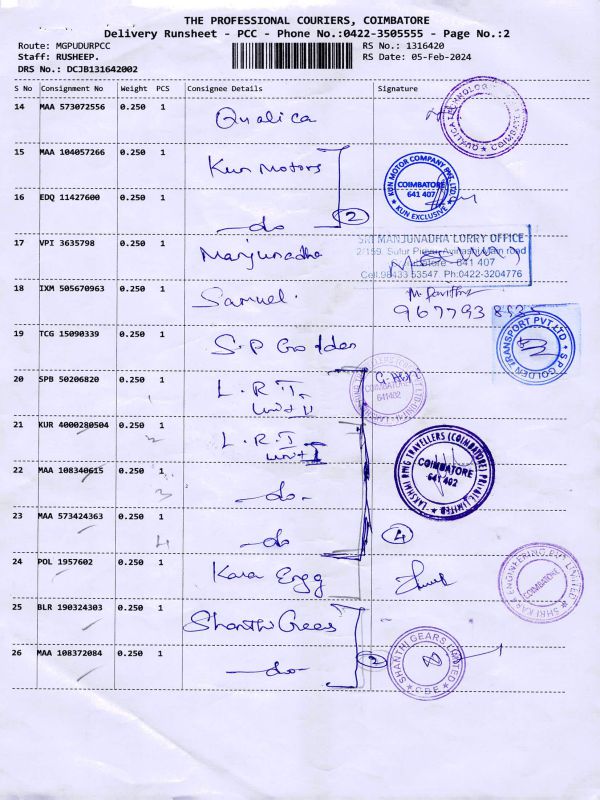 THE PROFESSIONAL COURIERS, COIMBATORE
Delivery Runsheet - PCC - Phone No.:0422-3505555 - Page No.:2
Route: MGPUDURPCC RS No.: 1316420
Staff: RUSHEEP. RS Date: 05-Feb-2024
DRS No.: DCJB131642002
S No Consignment No Weight PCS Consignee Details Signature
14 MAA 573072556 0.250 1 Qualica
15 MAA 104057266 0.250 1 Kun Motors
KUN MOTOR COMPANY PVT. LTD. COIMBATORE 641 407 KUN EXCLUSIVE
16 EDQ 11427600 0.250 1 -do- 2
17 VPI 3635798 0.250 1 Manjunadha
SRI MANJUNADHA LORRY OFFICE
Avinashi Main road
641 407
Cell.98433 53547 Ph:0422-3204776
18 IXM 505670963 0.250 1 Samuel.
19 TCG 15090339 0.250 1 S.P Golden
S P GOLDEN TRANSPORT PVT LTD COIMBATORE
20 SPB 50206820 1 0.250 1 L.R.T. unit II
COIMBATORE 641402
21 KUR 4000280504 0.250 1 2 L.R.T unit I
LAKSHMI RING TRAVELLERS (COIMBATORE) PRIVATE LIMITED COIMBATORE 641 402
22 MAA 108340615 0.250 1 3 -do-
23 MAA 573424363 0.250 1 4 -do 4
24 POL 1957602 0.250 1 Kara Engg
COIMBATORE
25 BLR 190324303 0.250 1 Shanthi Gears
26 MAA 108372084 0.250 1 -do- 2
SHANTHI GEARS LIMITED CBE